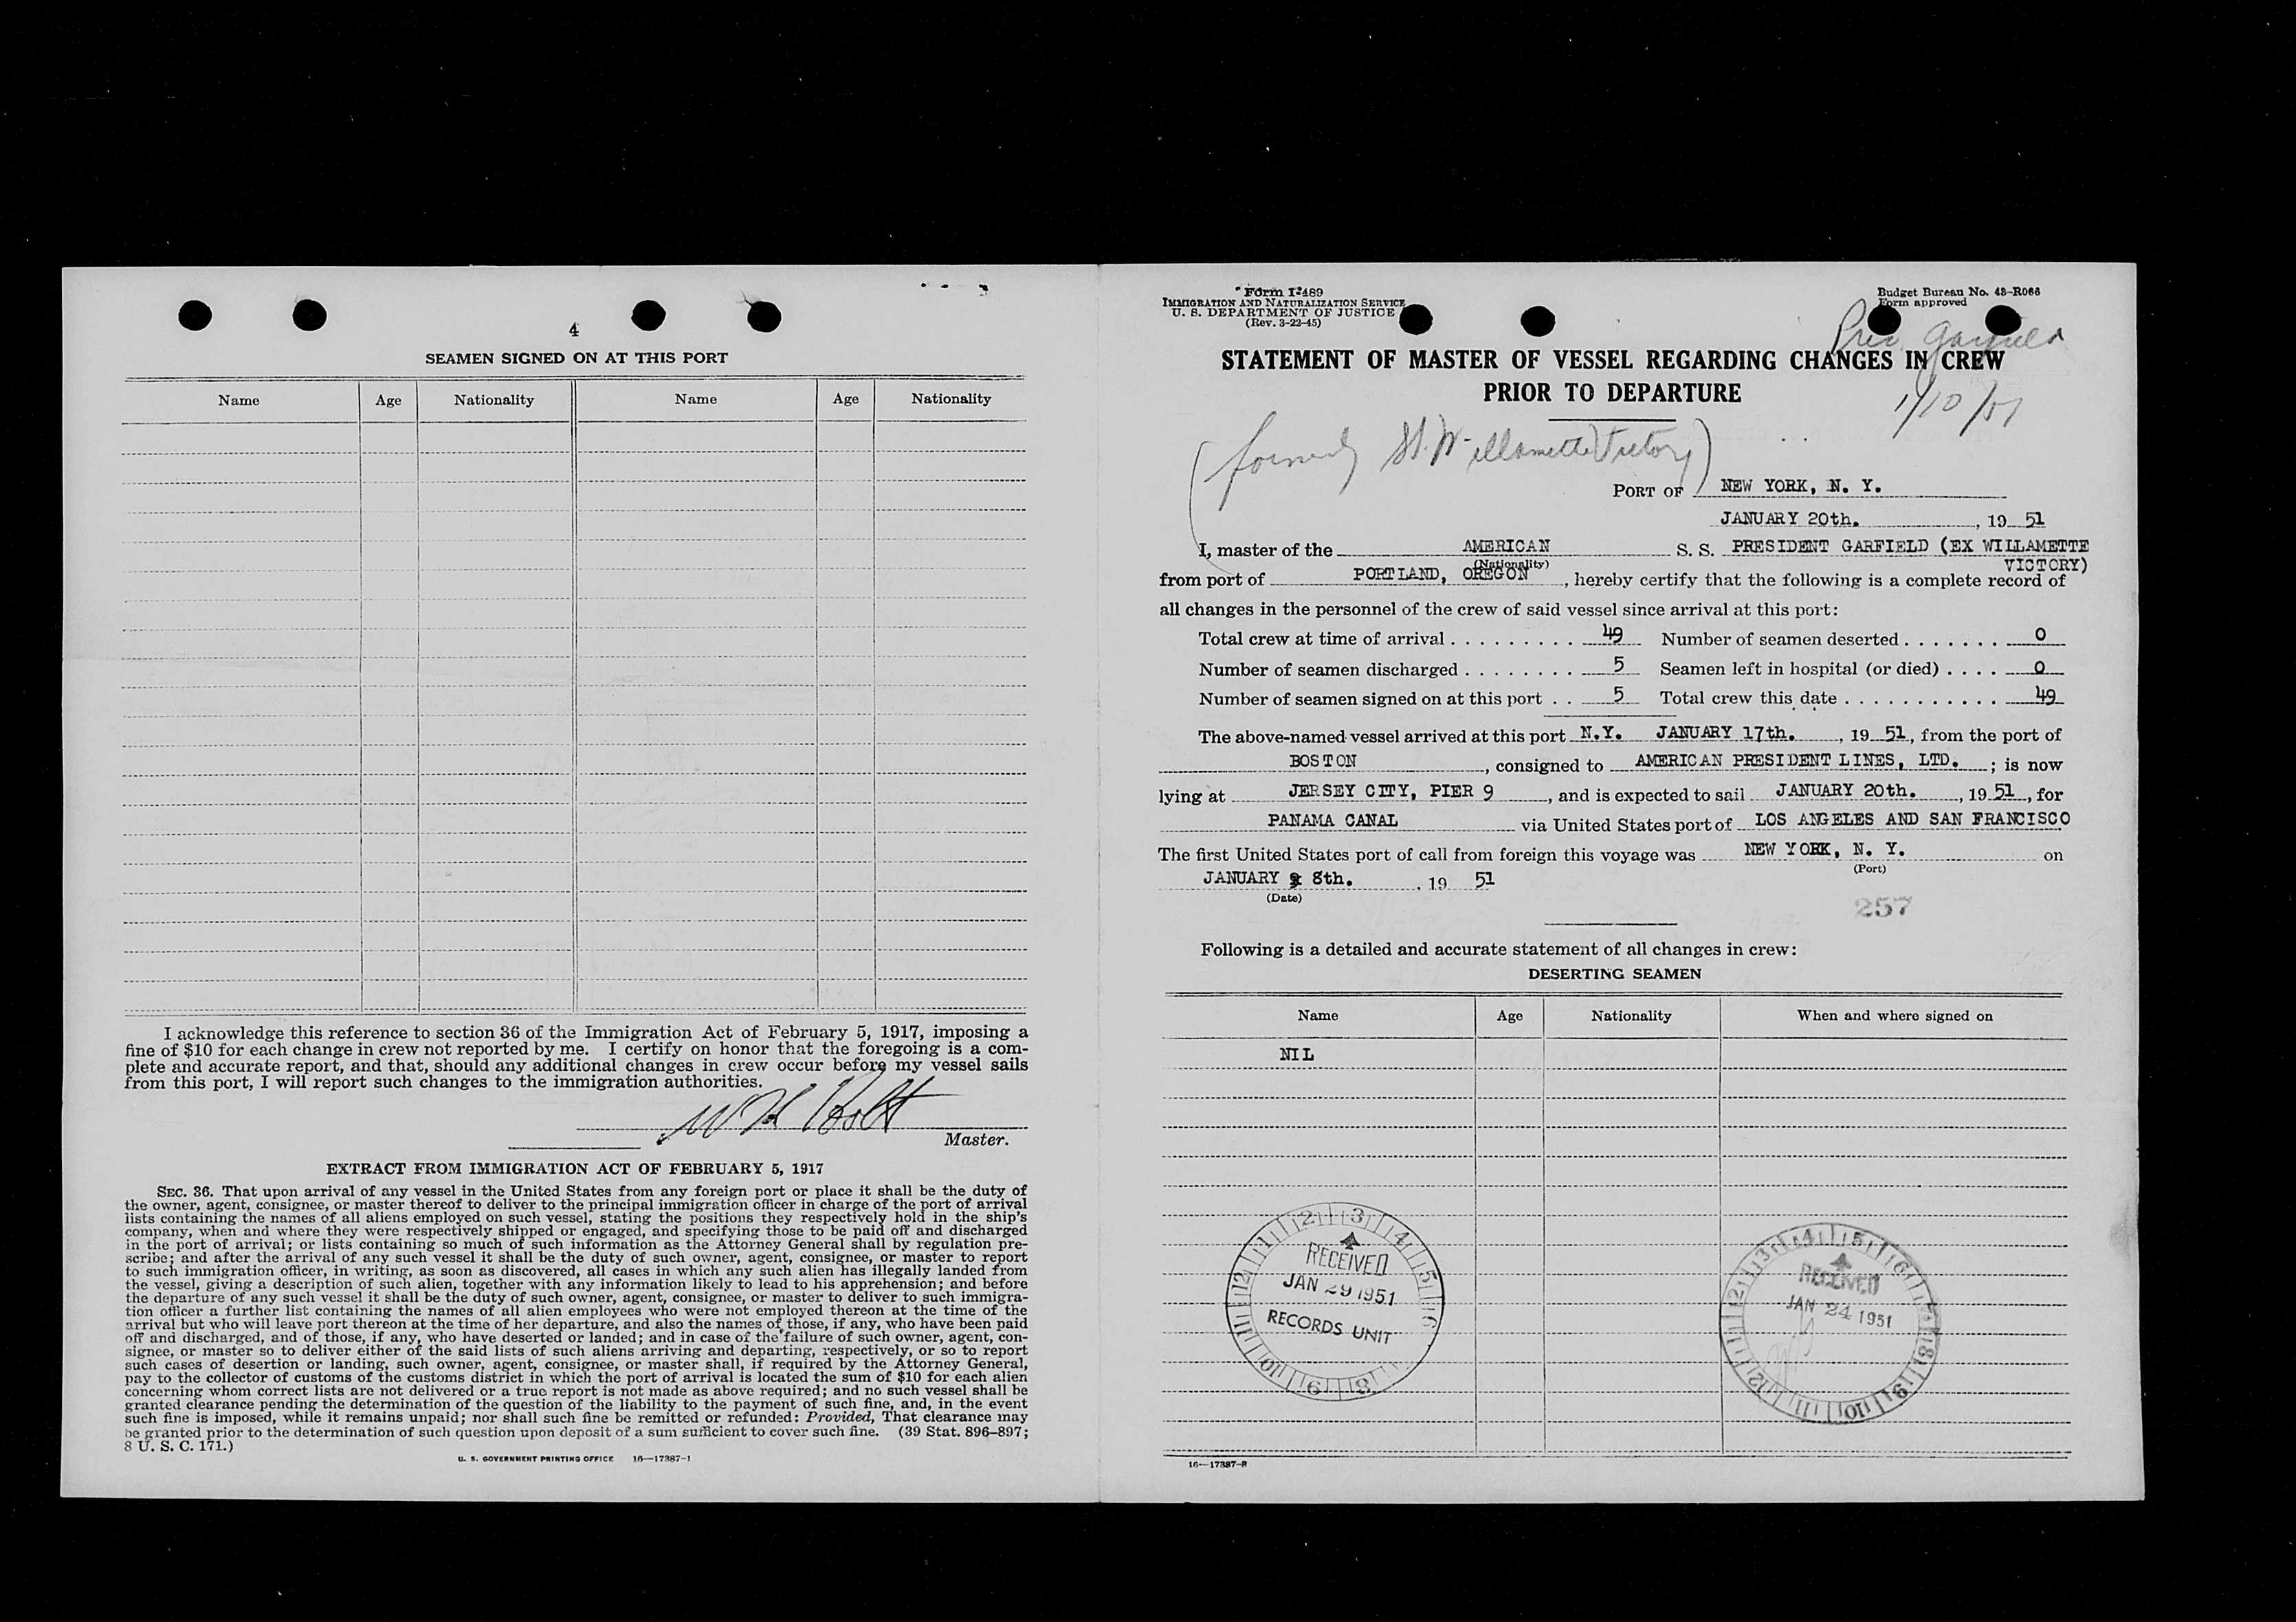 4
SEAMEN SIGNED ON AT THIS PORT
Name Age Nationality Name Age Nationality
I acknowledge this reference to section 36 of the Immigration Act of February 5, 1917, imposing a
fine of $10 for each change in crew not reported by me. I certify on honor that the foregoing is a com-
plete and accurate report, and that, should any additional changes in crew occur before my vessel sails
from this port, I will report such changes to the immigration authorities.
W H Bolt
Master.
EXTRACT FROM IMMIGRATION ACT OF FEBRUARY 5, 1917
SEC. 36. That upon arrival of any vessel in the United States from any foreign port or place it shall be the duty of
the owner, agent, consignee, or master thereof to deliver to the principal immigration officer in charge of the port of arrival
lists containing the names of all aliens employed on such vessel, stating the positions they respectively hold in the ship's
company, when and where they were respectively shipped or engaged, and specifying those to be paid off and discharged
in the port of arrival; or lists containing so much of such information as the Attorney General shall by regulation pre-
scribe; and after the arrival of any such vessel it shall be the duty of such owner, agent, consignee, or master to report
to such immigration officer, in writing, as soon as discovered, all cases in which any such alien has illegally landed from
the vessel, giving a description of such alien, together with any information likely to lead to his apprehension; and before
the departure of any such vessel it shall be the duty of such owner, agent, consignee, or master to deliver to such immigra-
tion officer a further list containing the names of all alien employees who were not employed thereon at the time of the
arrival but who will leave port thereon at the time of her departure, and also the names of those, if any, who have been paid
off and discharged, and of those, if any, who have deserted or landed; and in case of the failure of such owner, agent, con-
signee, or master so to deliver either of the said lists of such aliens arriving and departing, respectively, or so to report
such cases of desertion or landing, such owner, agent, consignee, or master shall, if required by the Attorney General,
pay to the collector of customs of the customs district in which the port of arrival is located the sum of $10 for each alien
concerning whom correct lists are not delivered or a true report is not made as above required; and no such vessel shall be
granted clearance pending the determination of the question of the liability to the payment of such fine, and, in the event
such fine is imposed, while it remains unpaid; nor shall such fine be remitted or refunded: Provided, That clearance may
be granted prior to the determination of such question upon deposit of a sum sufficient to cover such fine. (39 Stat. 896–897;
8 U. S. C. 171.)
U. S. GOVERNMENT PRINTING OFFICE 16—17387-1
Form I-489
IMMIGRATION AND NATURALIZATION SERVICE
U. S. DEPARTMENT OF JUSTICE
(Rev. 3-22-45)
Budget Bureau No. 43-R066
Form approved
Pres Garfield
STATEMENT OF MASTER OF VESSEL REGARDING CHANGES IN CREW
PRIOR TO DEPARTURE
1/10/51
(formerly Willamette Victory)
PORT OF NEW YORK, N. Y.
JANUARY 20th. , 19 51
I, master of the AMERICAN S. S. PRESIDENT GARFIELD (EX WILLAMETTE
(Nationality) VICTORY)
from port of PORTLAND, OREGON , hereby certify that the following is a complete record of
all changes in the personnel of the crew of said vessel since arrival at this port:
Total crew at time of arrival . . . . . . . . . . 49 Number of seamen deserted . . . . . . . 0
Number of seamen discharged . . . . . . . . 5 Seamen left in hospital (or died) . . . . 0
Number of seamen signed on at this port . . 5 Total crew this date . . . . . . . . . . . 49
The above-named vessel arrived at this port N.Y. JANUARY 17th. , 19 51, from the port of
BOSTON , consigned to AMERICAN PRESIDENT LINES, LTD. ; is now
lying at JERSEY CITY, PIER 9 , and is expected to sail JANUARY 20th. , 19 51 , for
PANAMA CANAL via United States port of LOS ANGELES AND SAN FRANCISCO
The first United States port of call from foreign this voyage was NEW YORK, N. Y. on
(Port)
JANUARY 8th. , 19 51
(Date)
257
Following is a detailed and accurate statement of all changes in crew:
DESERTING SEAMEN
Name Age Nationality When and where signed on
NIL
RECEIVED
JAN 29 1951
RECORDS UNIT
RECEIVED
JAN 24 1951
16—17387-2